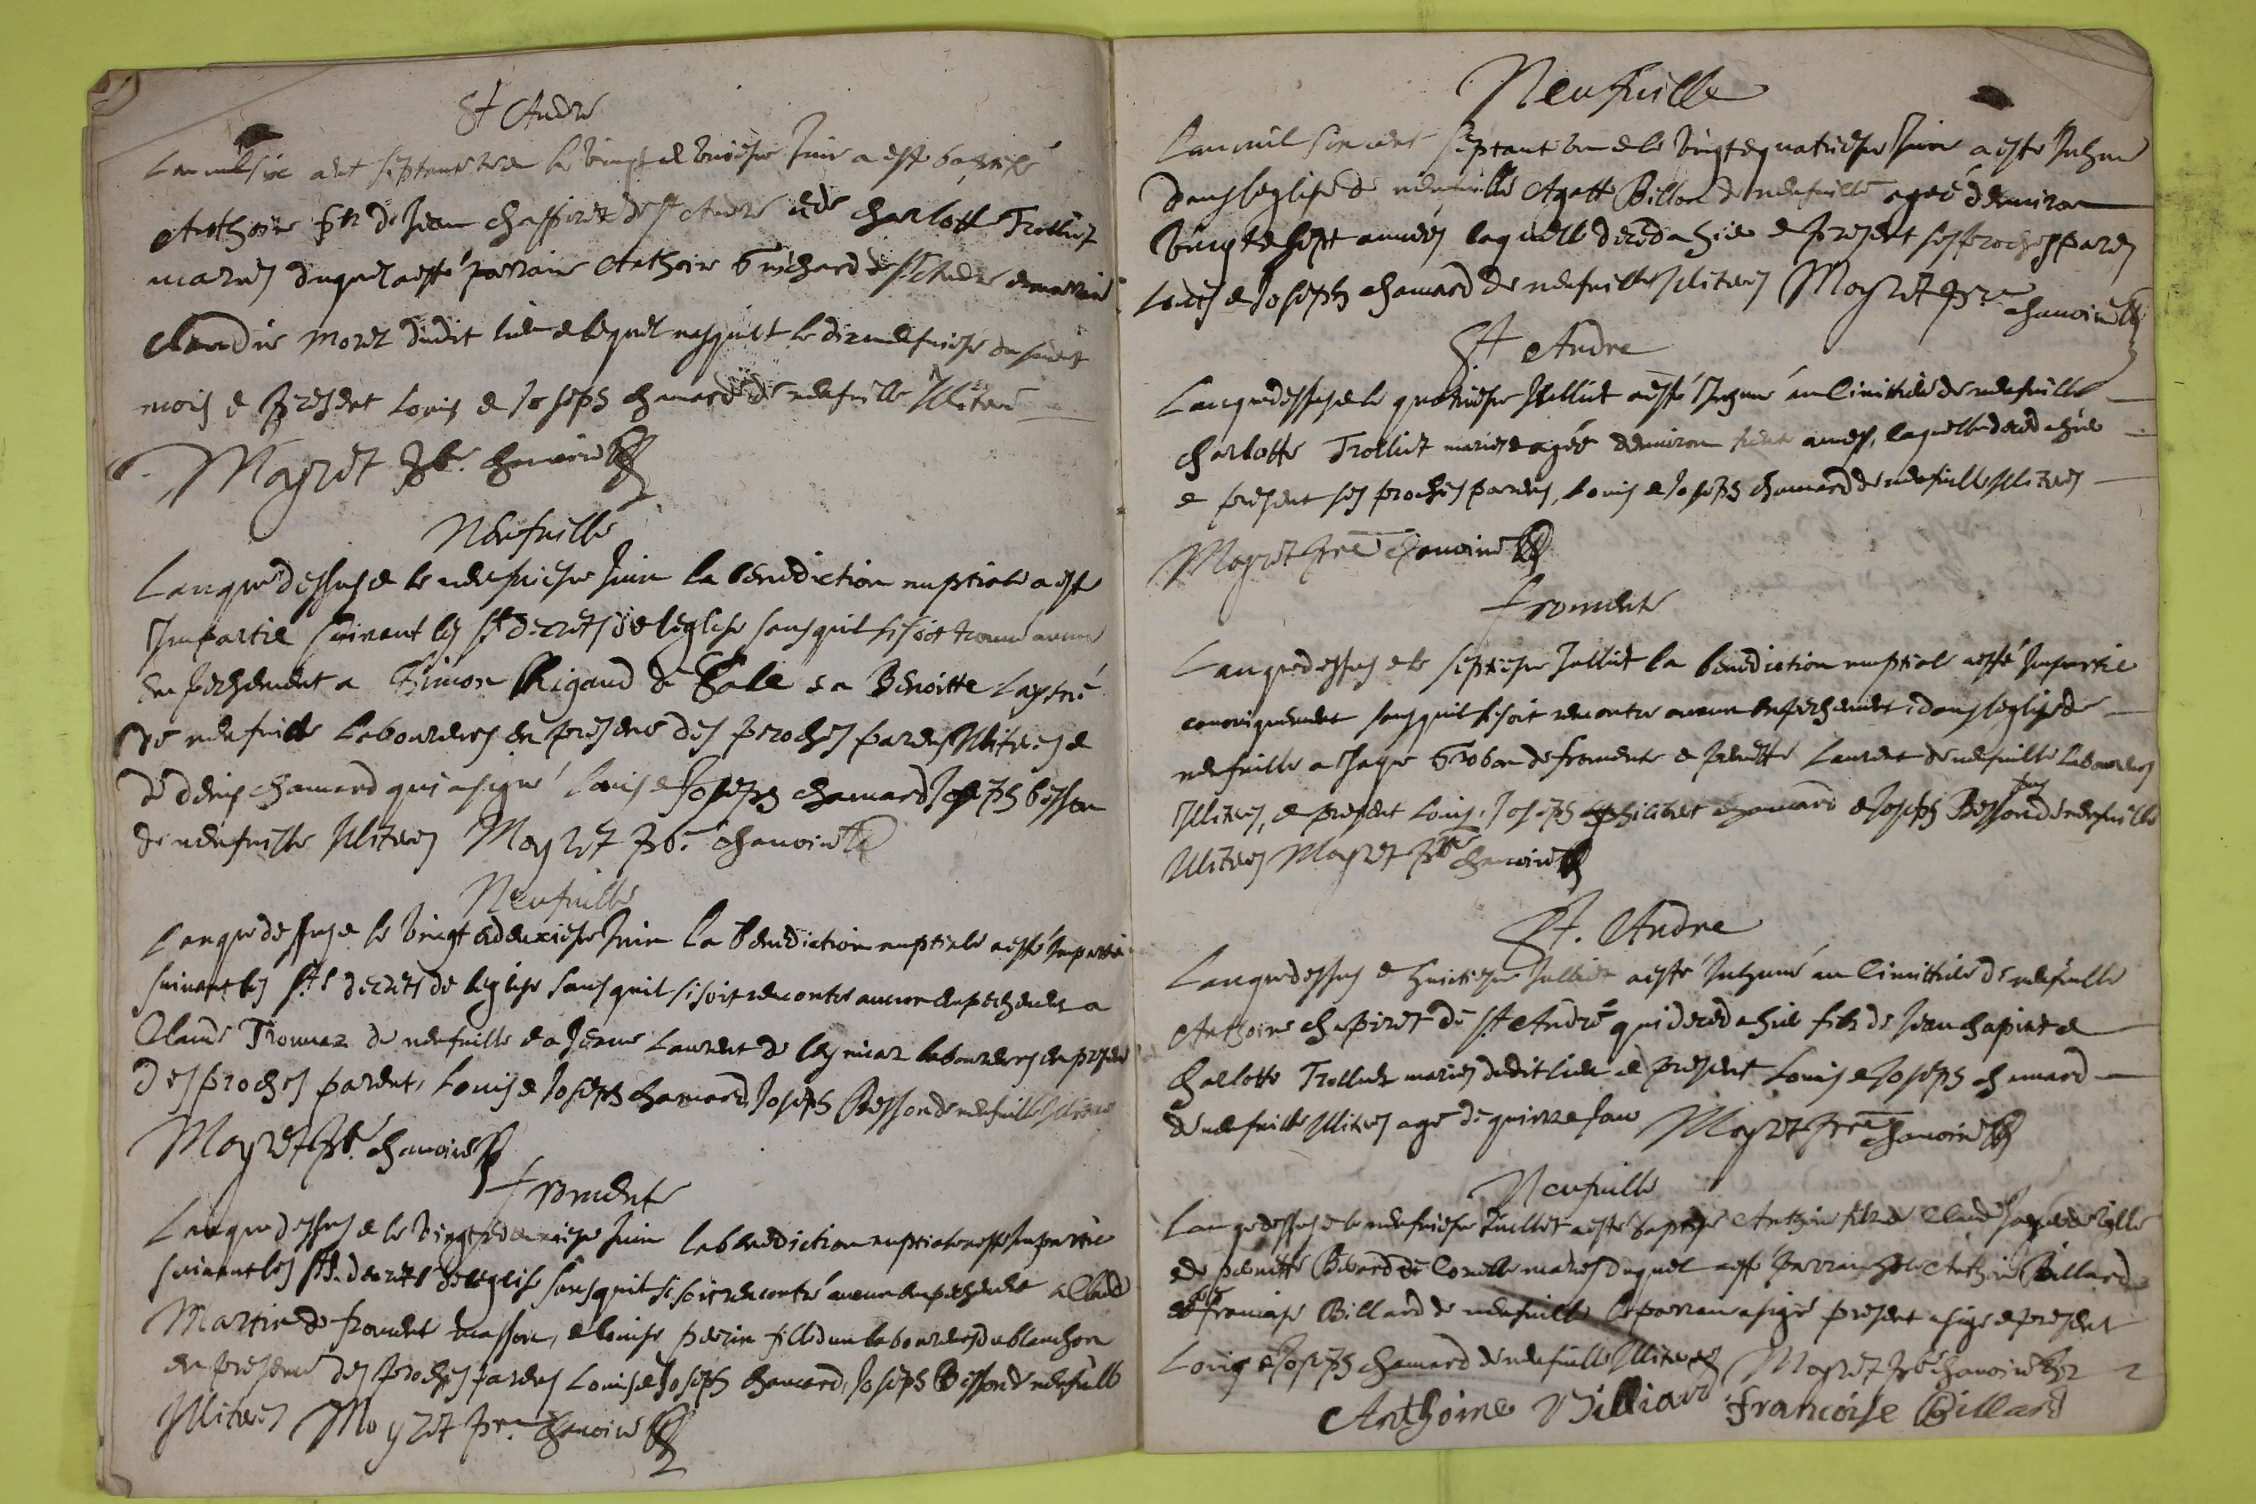 St Andre
Lan mil six cent septante un le vingt et uniesme Juin a esté baptisé
Anthoine filz de Jean chappiret de St André et de charlotte Trolliet
mariez duquel a esté parrain Anthoine Guichard de St Andre et marraine
Claudie Morel dudit lieu et lequel nasquit le dixneufviesme du susdit
mois et present Louis et Joseph chamard de neufville Illiterez
Mayret pbr. chanoine
Neufville
Lan que dessus et le neufviesme Juin la benediction nuptiale a esté
Impartie suivant les sts decrets de leglise sans quil se soit trouvé aucun
empechement a Simon Rigaud de et a Benoitte
de neufville laboureurs en presence des proches parens Illiterez et
de denis chamard qui a signé Louis et Joseph chamard Joseph besson
de neufville Illiterez Mayret pbr. chanoine
Neufville
Lan que dessus et le vingt et deuxiesme Juin la benediction nuptiale a esté Impartie
suivant les sts decrets de leglise sans quil se soit rencontré aucun empechement a
Claude de neufville et a Jeanne Laurent de laboureurs en presence
des proches parens, Louis et Joseph chamard, Joseph Besson de neufville Illiterez
Mayret pbr. chanoine
froment
Lan que dessus et le vingt et deuxiesme Juin la benediction nuptiale a esté Impartie
suivant les sts decrets de leglise sans quil se soit rencontré aucun empechement a Claude
Martin de froment masson, et louise perin fille dun laboureur du blanchon
en presence des proches parens Louis et Joseph chamard, Joseph Besson de neufville
Illiterez Mayret pre. chanoine
Neufville
Lan mil six cent septant un et le vingt et quatriesme Juin a esté Inhumé
dans leglise de neufville Agatte Billon de neufville ageé denviron
vingt et sept années laquelle deceda hier et present ses proches parens
Louis et Joseph chamard de neufville Illiterez Mayret pre chanoine
St Andre
Lan que dessus et le quatriesme Juilliet a esté Inhumé au Cimittiere de neufville
charlotte Trolliet mariee agée denviron trente années, laquelle deceda hier
et present ses proches parens, Louis et Joseph chamard de neufville Illiterez
Mayret pre chanoine
froment
Lan que dessus et le septiesme Julliet la benediction nuptiale a esté Impartie
canoniquement sans quil se soit rencontre aucun empechement dans leglise de
neufville a Jaque Groban de froment et Pernette Laurent de neufville Laboureurs
Illiterez, et present Louis, Joseph et philibert chamard et Joseph Besson de neufville
Illiterez Mayret pbr chanoine
St. Andre
Lan que dessus et huictiesme Julliet a esté Inhumé au Cimittiere de neufville
Anthoine chapiret de St André qui deceda hier filz de Jean chapiret et
Charlotte Trolliet mariez dudit lieu et present Louis et Joseph chamard
de neufville Illiterez agé de quinze jours Mayret pre chanoine
Neufville
Lan que dessus et le neufviesme Juillet a esté baptisé Anthoine filz de Claude
et de pernette mariez duquel a esté parrain Anthoine Billiard
et francoise Billard de neufville le parrain a signé present a signé et present
Louis et Joseph chamard de neufville Illiterez Mayret pbr chanoine
Anthoine Billiard francoise Billard